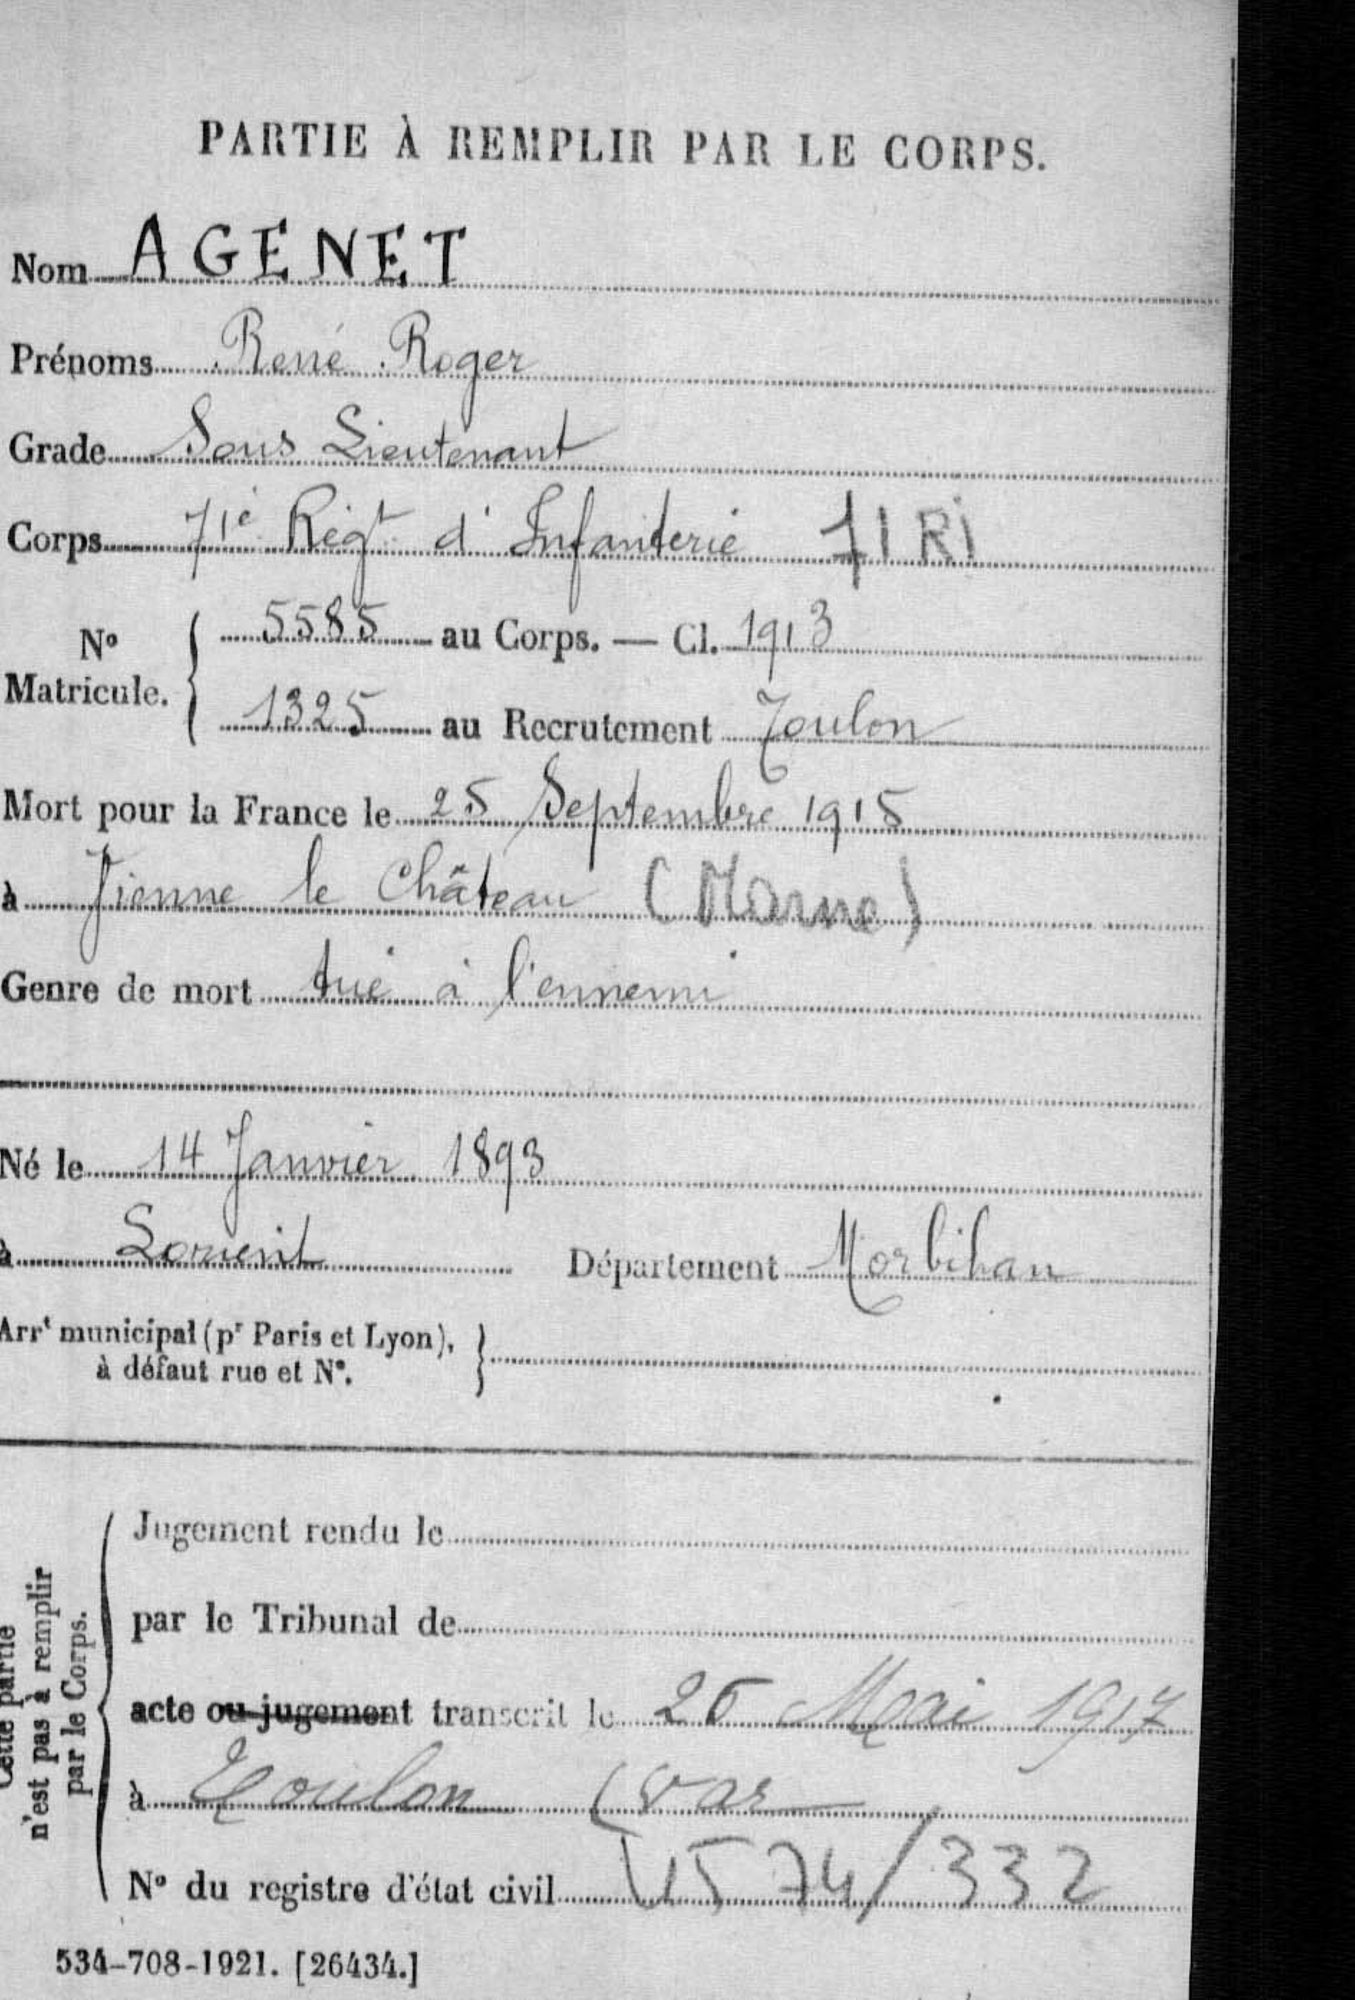 PARTIE À REMPLIR PAR LE CORPS.
Nom AGENET
Prénoms René Roger
Grade Sous Lieutenant
Corps 71e Régt d'Infanterie 71 RI
No Matricule. 5585 au Corps. — Cl. 1913
1325 au Recrutement Toulon
Mort pour la France le 25 Septembre 1915
à Vienne le Château (Marne)
Genre de mort tué à l'ennemi
Né le 14 Janvier 1893
à Lorient Département Morbihan
Arrt municipal (pr Paris et Lyon),
à défaut rue et No.
Cette partie
n'est pas à remplir
par le Corps.
Jugement rendu le
par le Tribunal de
acte ou jugement transcrit le Mai 1917
à Toulon (Var
No du registre d'état civil 1574/332
534-708-1921. [26434.]